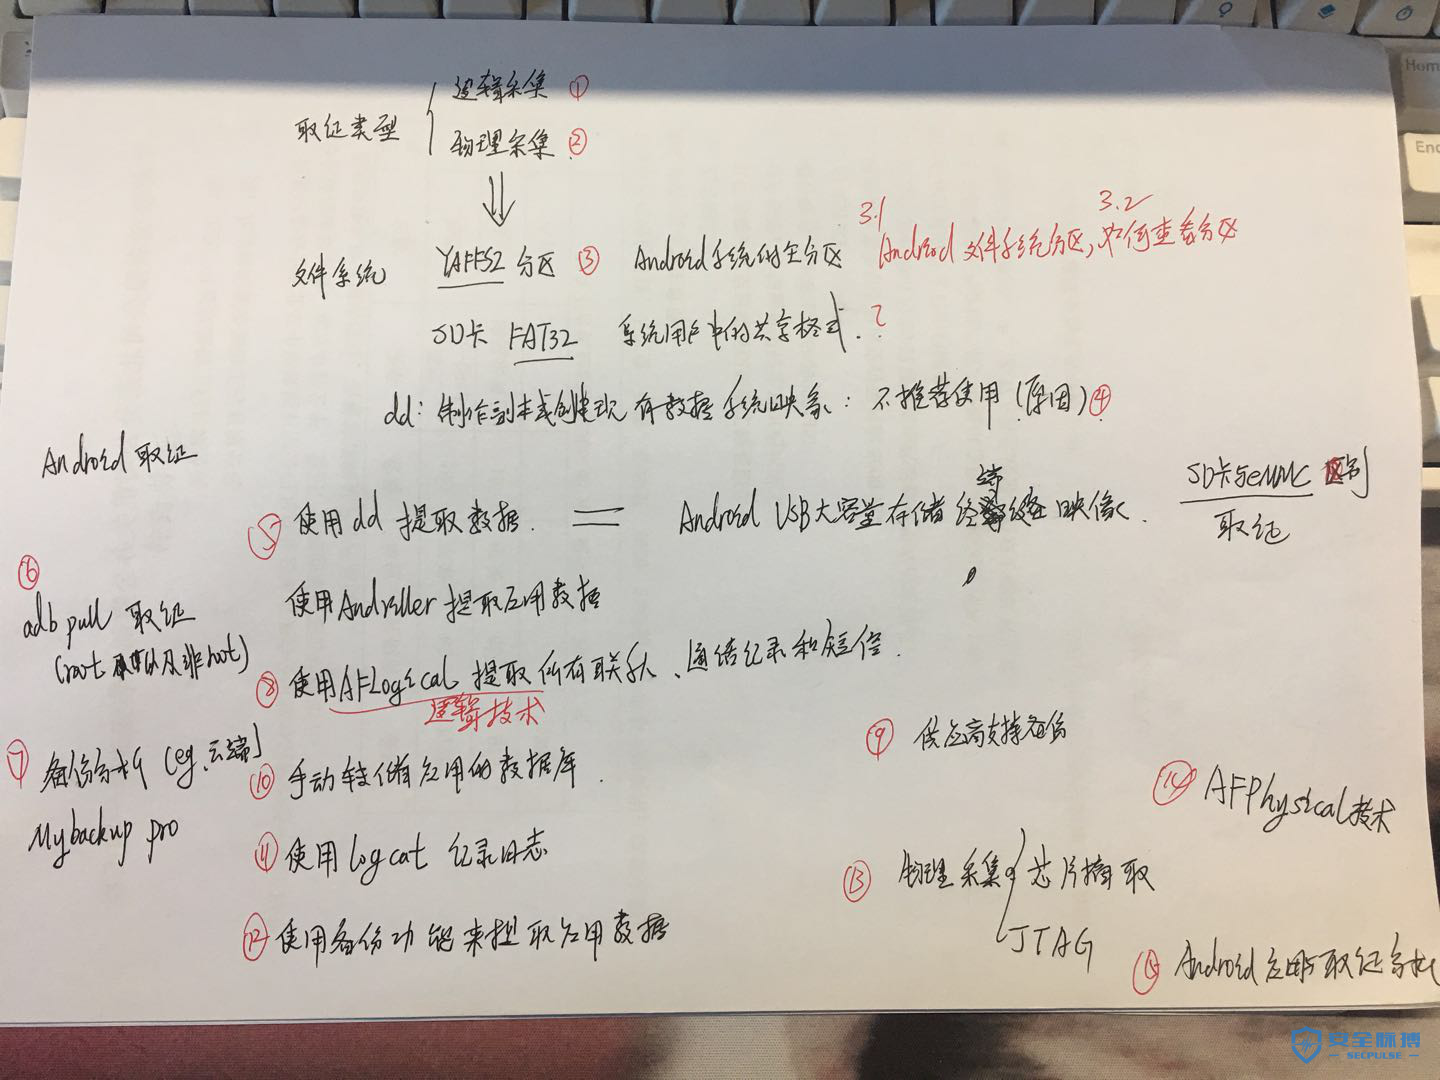 逻辑采集 ①
取证类型
物理采集 ②
3.1 3.2
文件系统 YAFFS2 分区 ③ Android系统的全分区 Android 文件系统分区,如何查看分区
SD卡 FAT32 系统用户中的共享格式.?
dd: 制作副本或创建现有数据系统映象: 不推荐使用 (原因) ④
Android 取证
⑤ 使用dd 提取数据. = Android USB大容量存储 映像. SD卡与eMMC 区别
取证
⑥
adb pull 取证
(root 以及非root)
使用Andriller提取应用数据
⑧ 使用AFLogical 提取所有联系人、通话记录和短信.
逻辑技术
⑦ 备份分析 (eg.云端)
Mybackup pro
⑨ 供应商支持备份
⑩ 手动转储应用的数据库.
⑭ AFPhysical技术
⑪ 使用logcat 记录日志
⑬ 物理采集 芯片摘取
JTAG
⑫ 使用备份功能来提取应用数据
⑮ Android应用取证分析
Home
End
安全脉搏
SECPULSE